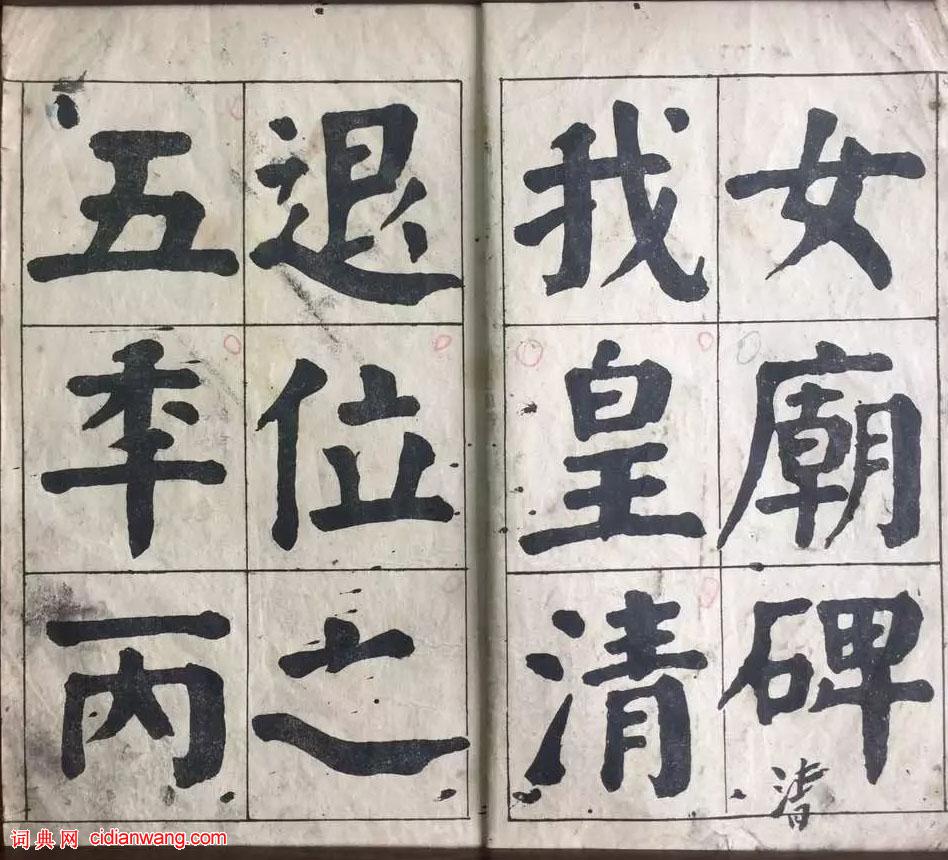 女廟碑
我皇清
退位之
五秊丙
清
词典网 cidianwang.com